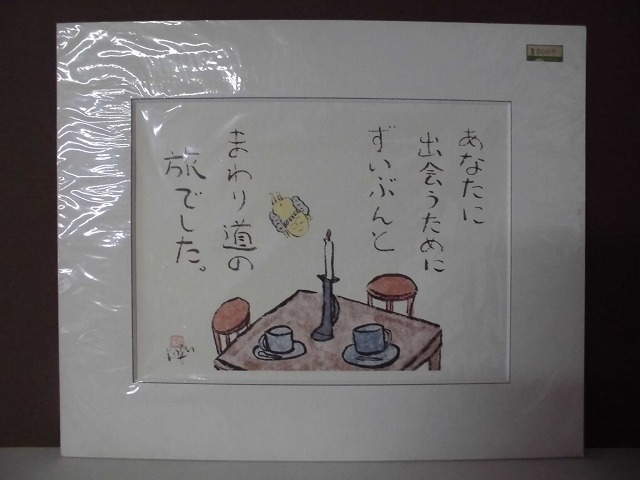 あなたに
出会うために
ずいぶんと
まわり道の
旅でした。